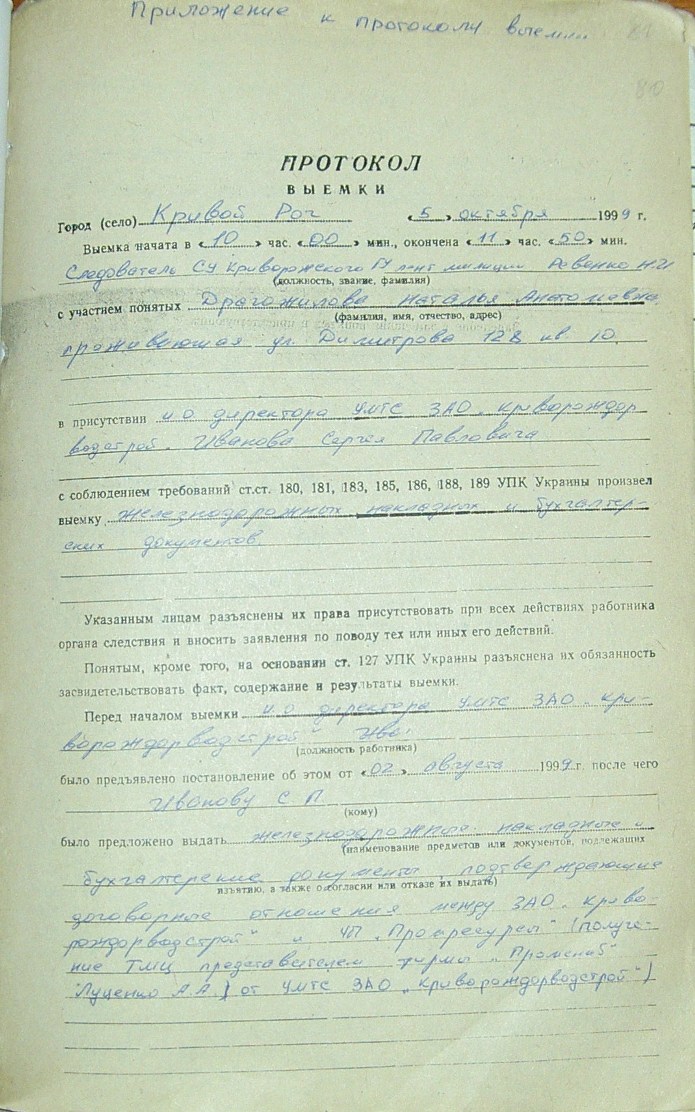 Приложение к протоколу выемки 81
80
ПРОТОКОЛ
ВЫЕМКИ
Город (село) Кривой Рог «5» октября 1999 г.
Выемка начата в «10» час. «00» мин., окончена «11» час. «50» мин.
Следователь СУ Криворожского ГУ л-нт милиции Ревенко Н.И
(должность, звание, фамилия)
с участием понятых Драгожилова Наталья Анатольевна
(фамилия, имя, отчество, адрес)
проживающая ул. Димитрова 128 кв 10
в присутствии и о директора УМТС ЗАО „Криворождор
водстрой. Иванова Сергея Павловича
с соблюдением требований ст.ст. 180, 181, 183, 185, 186, 188, 189 УПК Украины произвел
выемку железнодорожных накладных и бухгалтер-
ских документов.
Указанным лицам разъяснены их права присутствовать при всех действиях работника
органа следствия и вносить заявления по поводу тех или иных его действий.
Понятым, кроме того, на основании ст. 127 УПК Украины разъяснена их обязанность
засвидетельствовать факт, содержание и результаты выемки.
Перед началом выемки и о директора УМТС ЗАО „Кри-
вораждорводстрой"
(должность работника)
было предъявлено постановление об этом от «02» августа 1999 г. после чего
Иванову С П
(кому)
было предложено выдать железнодорожные накладные и
(наименование предметов или документов, подлежащих
бухгалтерские документы, подтверждающие
изъятию, а также о согласии или отказе их выдать)
договорные отношения между ЗАО „Криво-
рождорводстрой" и ЧП „Промресурсы" (получе-
ние ТМЦ представителем фирмы „Промснаб"
Луценко А.А.) от УМТС ЗАО „Криворождорводстрой")